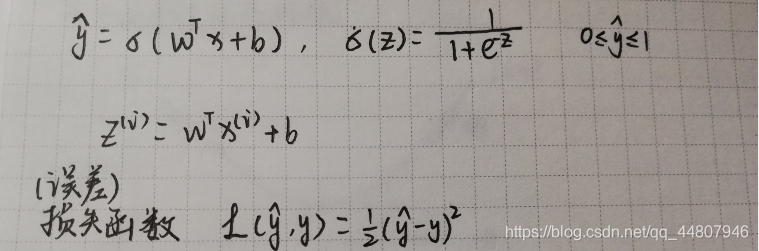 ŷ = σ(wᵀx+b), σ(z) = 1/(1+e^z) 0≤ŷ≤1
z⁽ⁱ⁾ = wᵀx⁽ⁱ⁾+b
(误差)
损失函数 L(ŷ,y) = ½(ŷ-y)²
https://blog.csdn.net/qq_44807946